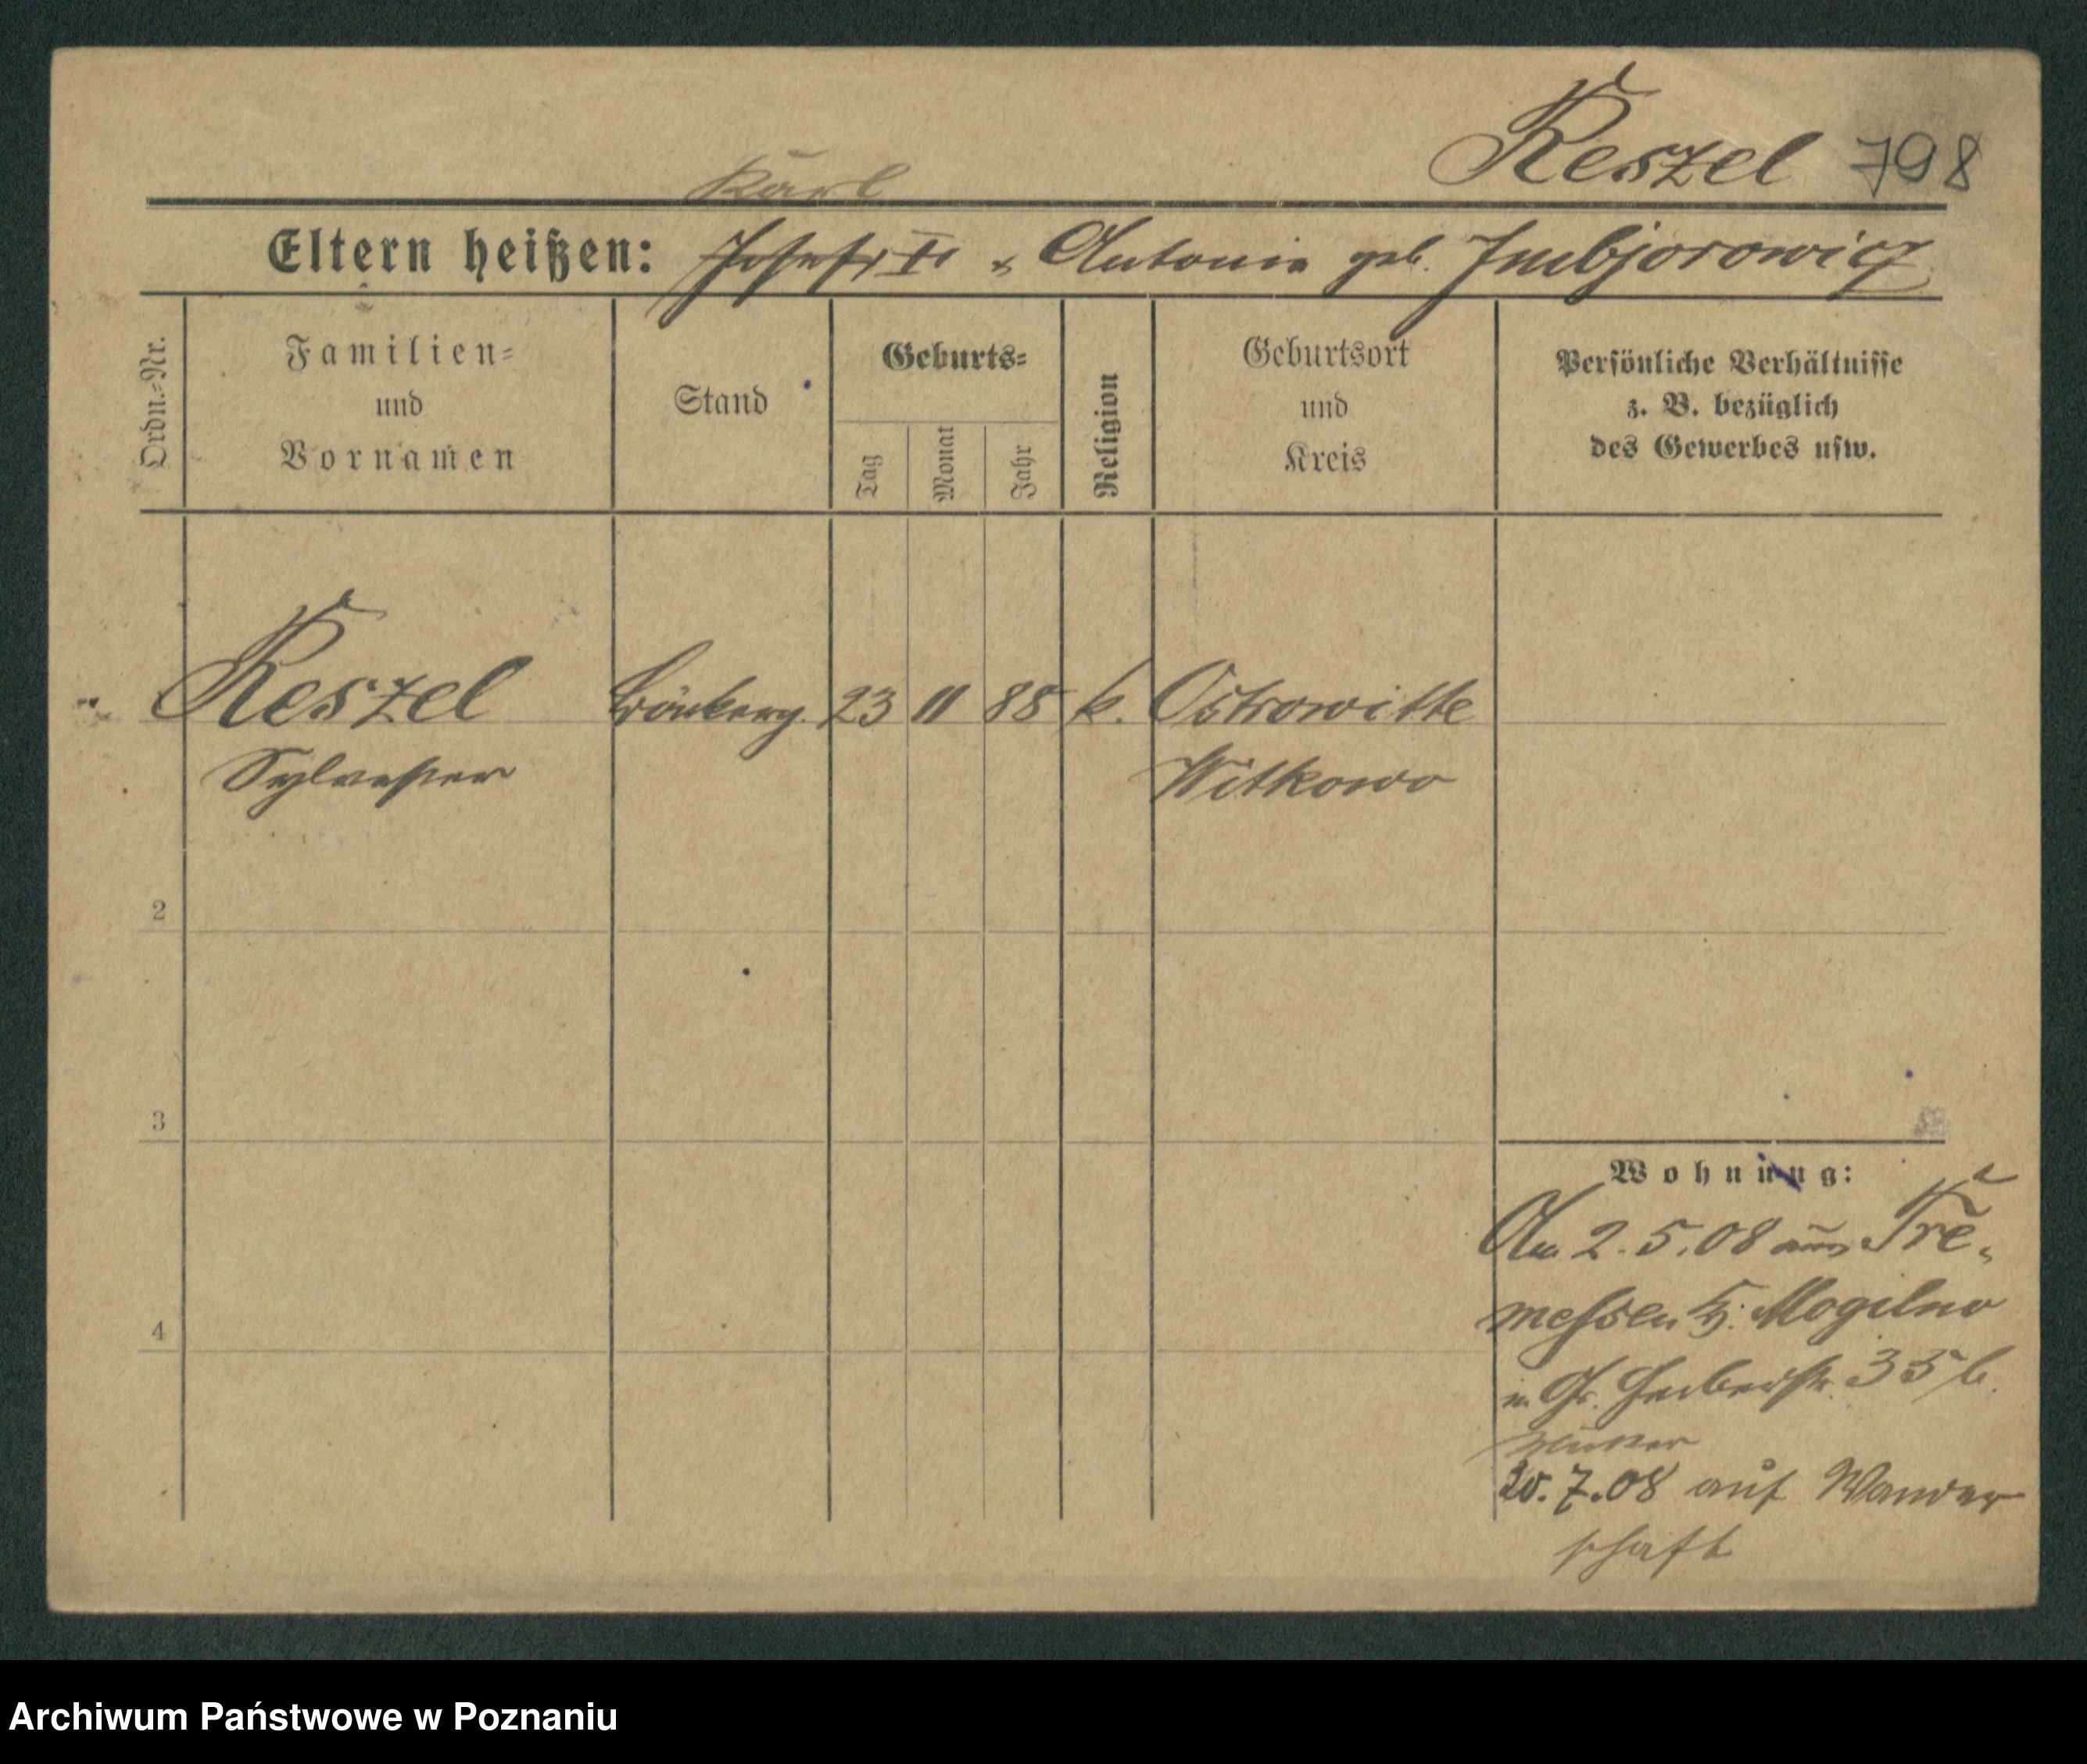 Keszel 798
Karl
Eltern heißen: Josef II & Antonia geb.
Ordn.-Nr.
Familien-
und
Vornamen
Stand
Geburts-
Tag
Monat
Jahr
Religion
Geburtsort
und
Kreis
Persönliche Verhältnisse
z. B. bezüglich
des Gewerbes usw.
Keszel 23 11 88 k. Ostrowitte
Sylvester Witkowo
2
3
4
Wohnung:
Am 2.5.08 aus Tre-
messen Kr. Mogilno
n. Gr. Gerberstr. 35 b.
20.7.08 auf Wander
schaft
Archiwum Państwowe w Poznaniu